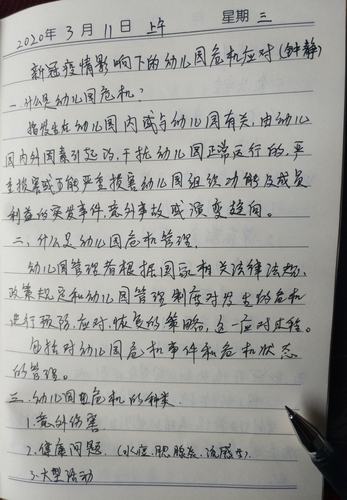 2020年3月11日 上午 星期三
新冠疫情影响下的幼儿园危机应对(钟静)
一.什么是幼儿园危机?
指发生在幼儿园内或与幼儿园有关,由幼儿
园内外因素引起的,干扰幼儿园正常运行的,严
重损害或可能严重损害幼儿园组织功能及成员
利益的突发事件,意外事故或演变趋向。
二、什么是幼儿园危机管理.
幼儿园管理者根据国家相关法律法规,
政策规定和幼儿园管理制度对发生的危机
进行预防,应对,恢复的策略,这一应对过程。
包括对幼儿园危机事件和危机状态
的管理。
三.幼儿园危机的种类.
1.意外伤害
2.健康问题.(水痘.腮腺炎.流感等).
3.大型活动